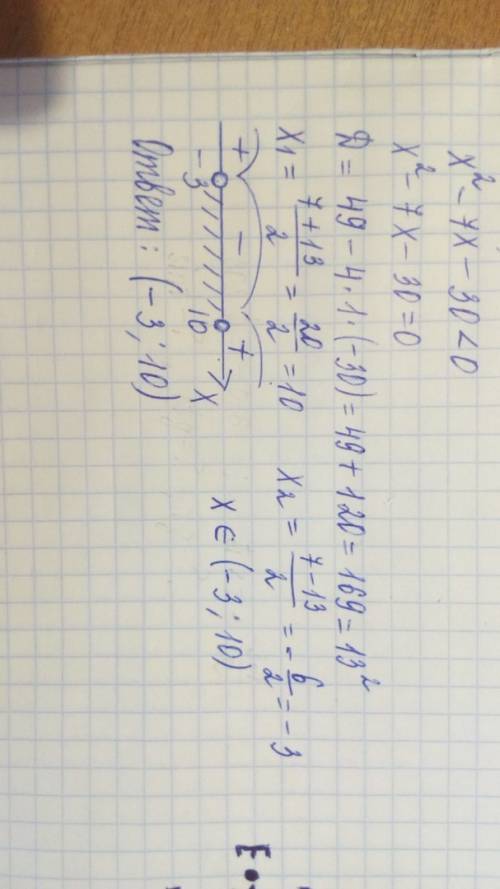 x² - 7x - 30 < 0
x² - 7x - 30 = 0
D = 49 - 4·1·(-30) = 49 + 120 = 169 = 13²
x1 = (7+13)/2 = 20/2 = 10 x2 = (7-13)/2 = -6/2 = -3
+ - +
-3 10 x x ∈ (-3; 10)
Ответ: (-3; 10)
E